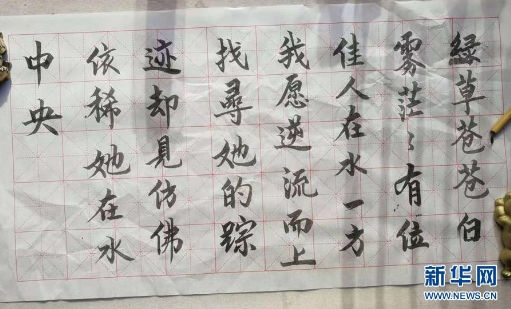 绿草苍苍白
雾茫〻有位
佳人在水一方
我愿逆流而上
找寻她的踪
迹却見仿佛
依稀她在水
中央
新华网
WWW.NEWS.CN